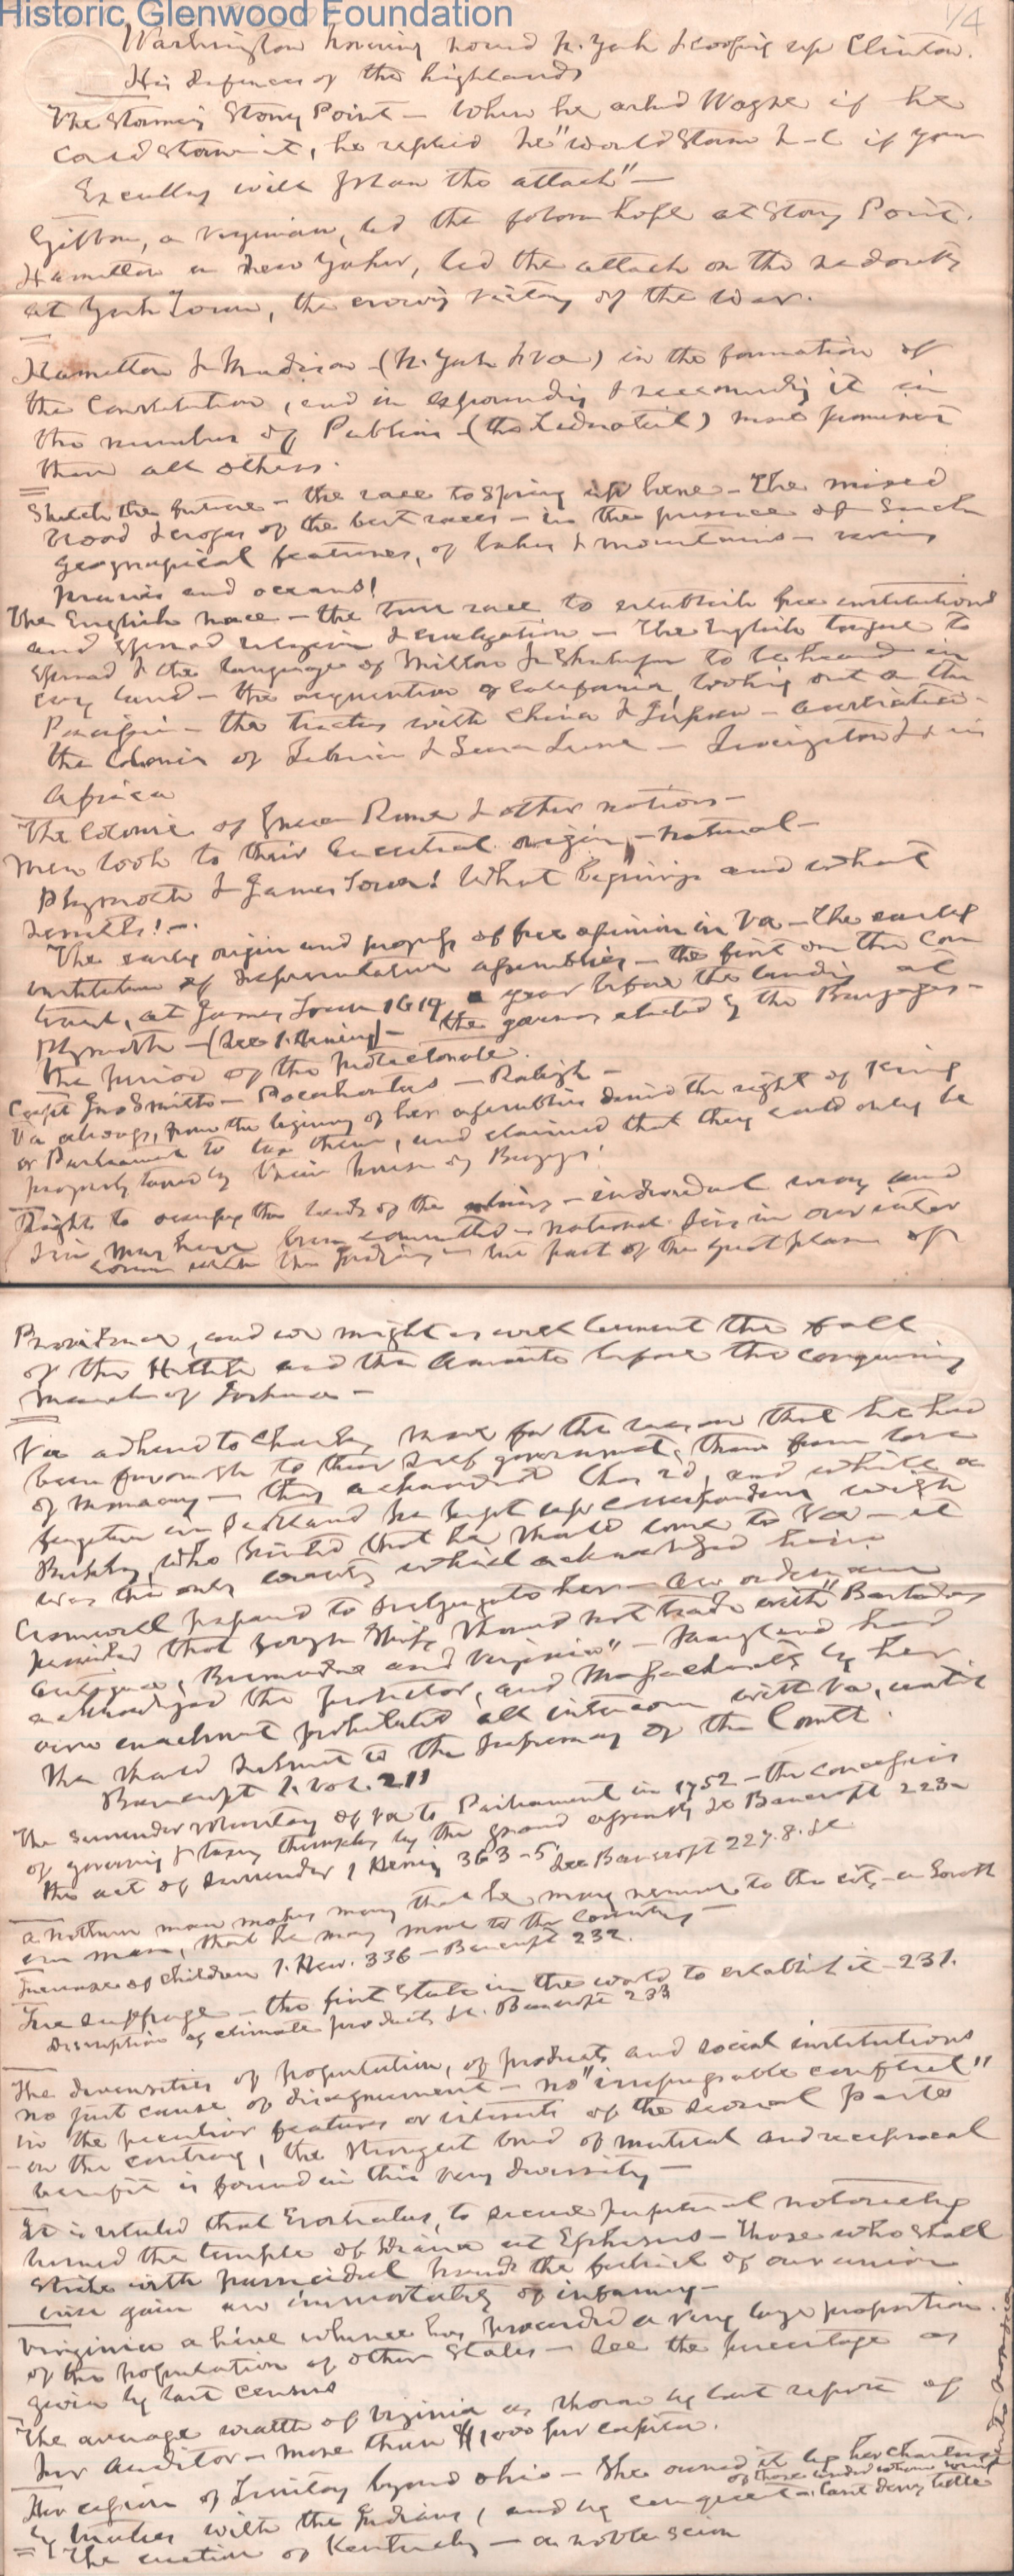 Historic Glenwood Foundation
1/4
Washington hovering round N. York & cooping up Clinton.
His defences of the highlands
The storming Stony Point – When he asked Wayne if he
could storm it, he replied he "would storm h–l if your
Excellency will plan the attack" –
Gibbon, a Virginian, led the forlorn hope at Stony Point.
Hamilton a New Yorker, led the attack on the redoubt
at York Town, the crowning victory of the war.
Hamilton & Madison – (N. York & Va) in the formation of
the Constitution, and in expounding & recommending it in
the number of Publius – (the Federalist) more prominent
than all others.
Sketch the future – the race to spring up here – The mixed
blood & crosses of the best races – in the presence of such
geographical features, of lakes & mountains – rivers
prairies and oceans!
The English race – the true race to establish free institutions
and spread religion & civilization – The English tongue to
spread & the language of Milton & Shakespr to be heard in
every land – the acquisition of California, looking out on the
Pacific – the treaties with China & Japan – Australia –
the colonies of Liberia & Sierra Leone – Livingston &c in
Africa
The Colonies of Greece Rome & other nations –
Men look to their ancestral origin – natural –
Plymouth & James Town! What beginnings and what
results! –
The early origin and progress of free opinion in Va – The early
institution of representative assemblies – the first on the Con
tinent, at James Town 1619 a year before the landing at
Plymouth – (See 1. Hening) – the governor elected by the Burgesses –
the period of the protectorate.
Capt Jno Smith – Pocahontas – Raleigh –
Va always, from the begining of her assemblies denied the right of King
or Parliament to tax them, and claimed that they could only be
properly taxed by their house of Burgesses!
Right to occupy the lands of the – individual wrong and
sin may have been committed – national sin in our inter
course with the Indians – but part of the great plan of
Providence, and we might as well lament the fall
of the Hittite and the Amorite before the conquering
march of Joshua –
Va adhered to Charles, more for the reason that he had
been favorable to their self government, than from love
of monarchy – they acknowledged Chas 2d, and while a
fugitive in Scotland he kept up correspondence with
Berkeley, who hinted that he should come to Va – it
was the only country which acknowledged him.
Cromwell prepared to subjugate her – An ordinance
provided that foreign ships should not trade with "Barbadoes
Antigua, Bermudas and Virginia" – Maryland had
acknowledged the protector, and Massachusetts by her
own enactment prohibited all intercourse with Va, until
she should submit to the supremacy of the Comlth.
Bancroft 1. Vol. 211
The surrender voluntary of Va to Parliament in 1752 – the concession
of governing & taxing themselves by the grand assembly &c Bancroft 223 –
the act of surrender 1 Hening 363–5. See Bancroft 227.8. &c
A northern man makes money that he may remove to the city – a South
ern man, that he may move to the country –
Increase of children 1. Hen. 336 – Bancroft 232.
Free suffrage – the first State in the world to establish it – 231.
Description of climate products &c. Bancroft 233
The diversities of population, of products and social institutions
no just cause of disagreement – no "irrepressible conflict"
in the peculiar features or interests of the several parts
– on the contrary, the strongest bond of mutual and reciprocal
benefit is found in this very diversity –
It is related that Erostratus, to secure perpetual notoriety
burned the temple of Diana at Ephesus – Those who shall
strike with parricidal hands the fabric of our union
will gain an immortality of infamy –
Virginia a hive whence has proceeded a very large proportion
of the population of other States – See the percentage as
given by last census
The average wealth of Virginia as shown by last report of
her auditor – more than $1000 per capita.
Her cession of Territory beyond Ohio – She owned it by her charters
by treaties with the Indians, and by conquest –
The erection of Kentucky – a noble scion